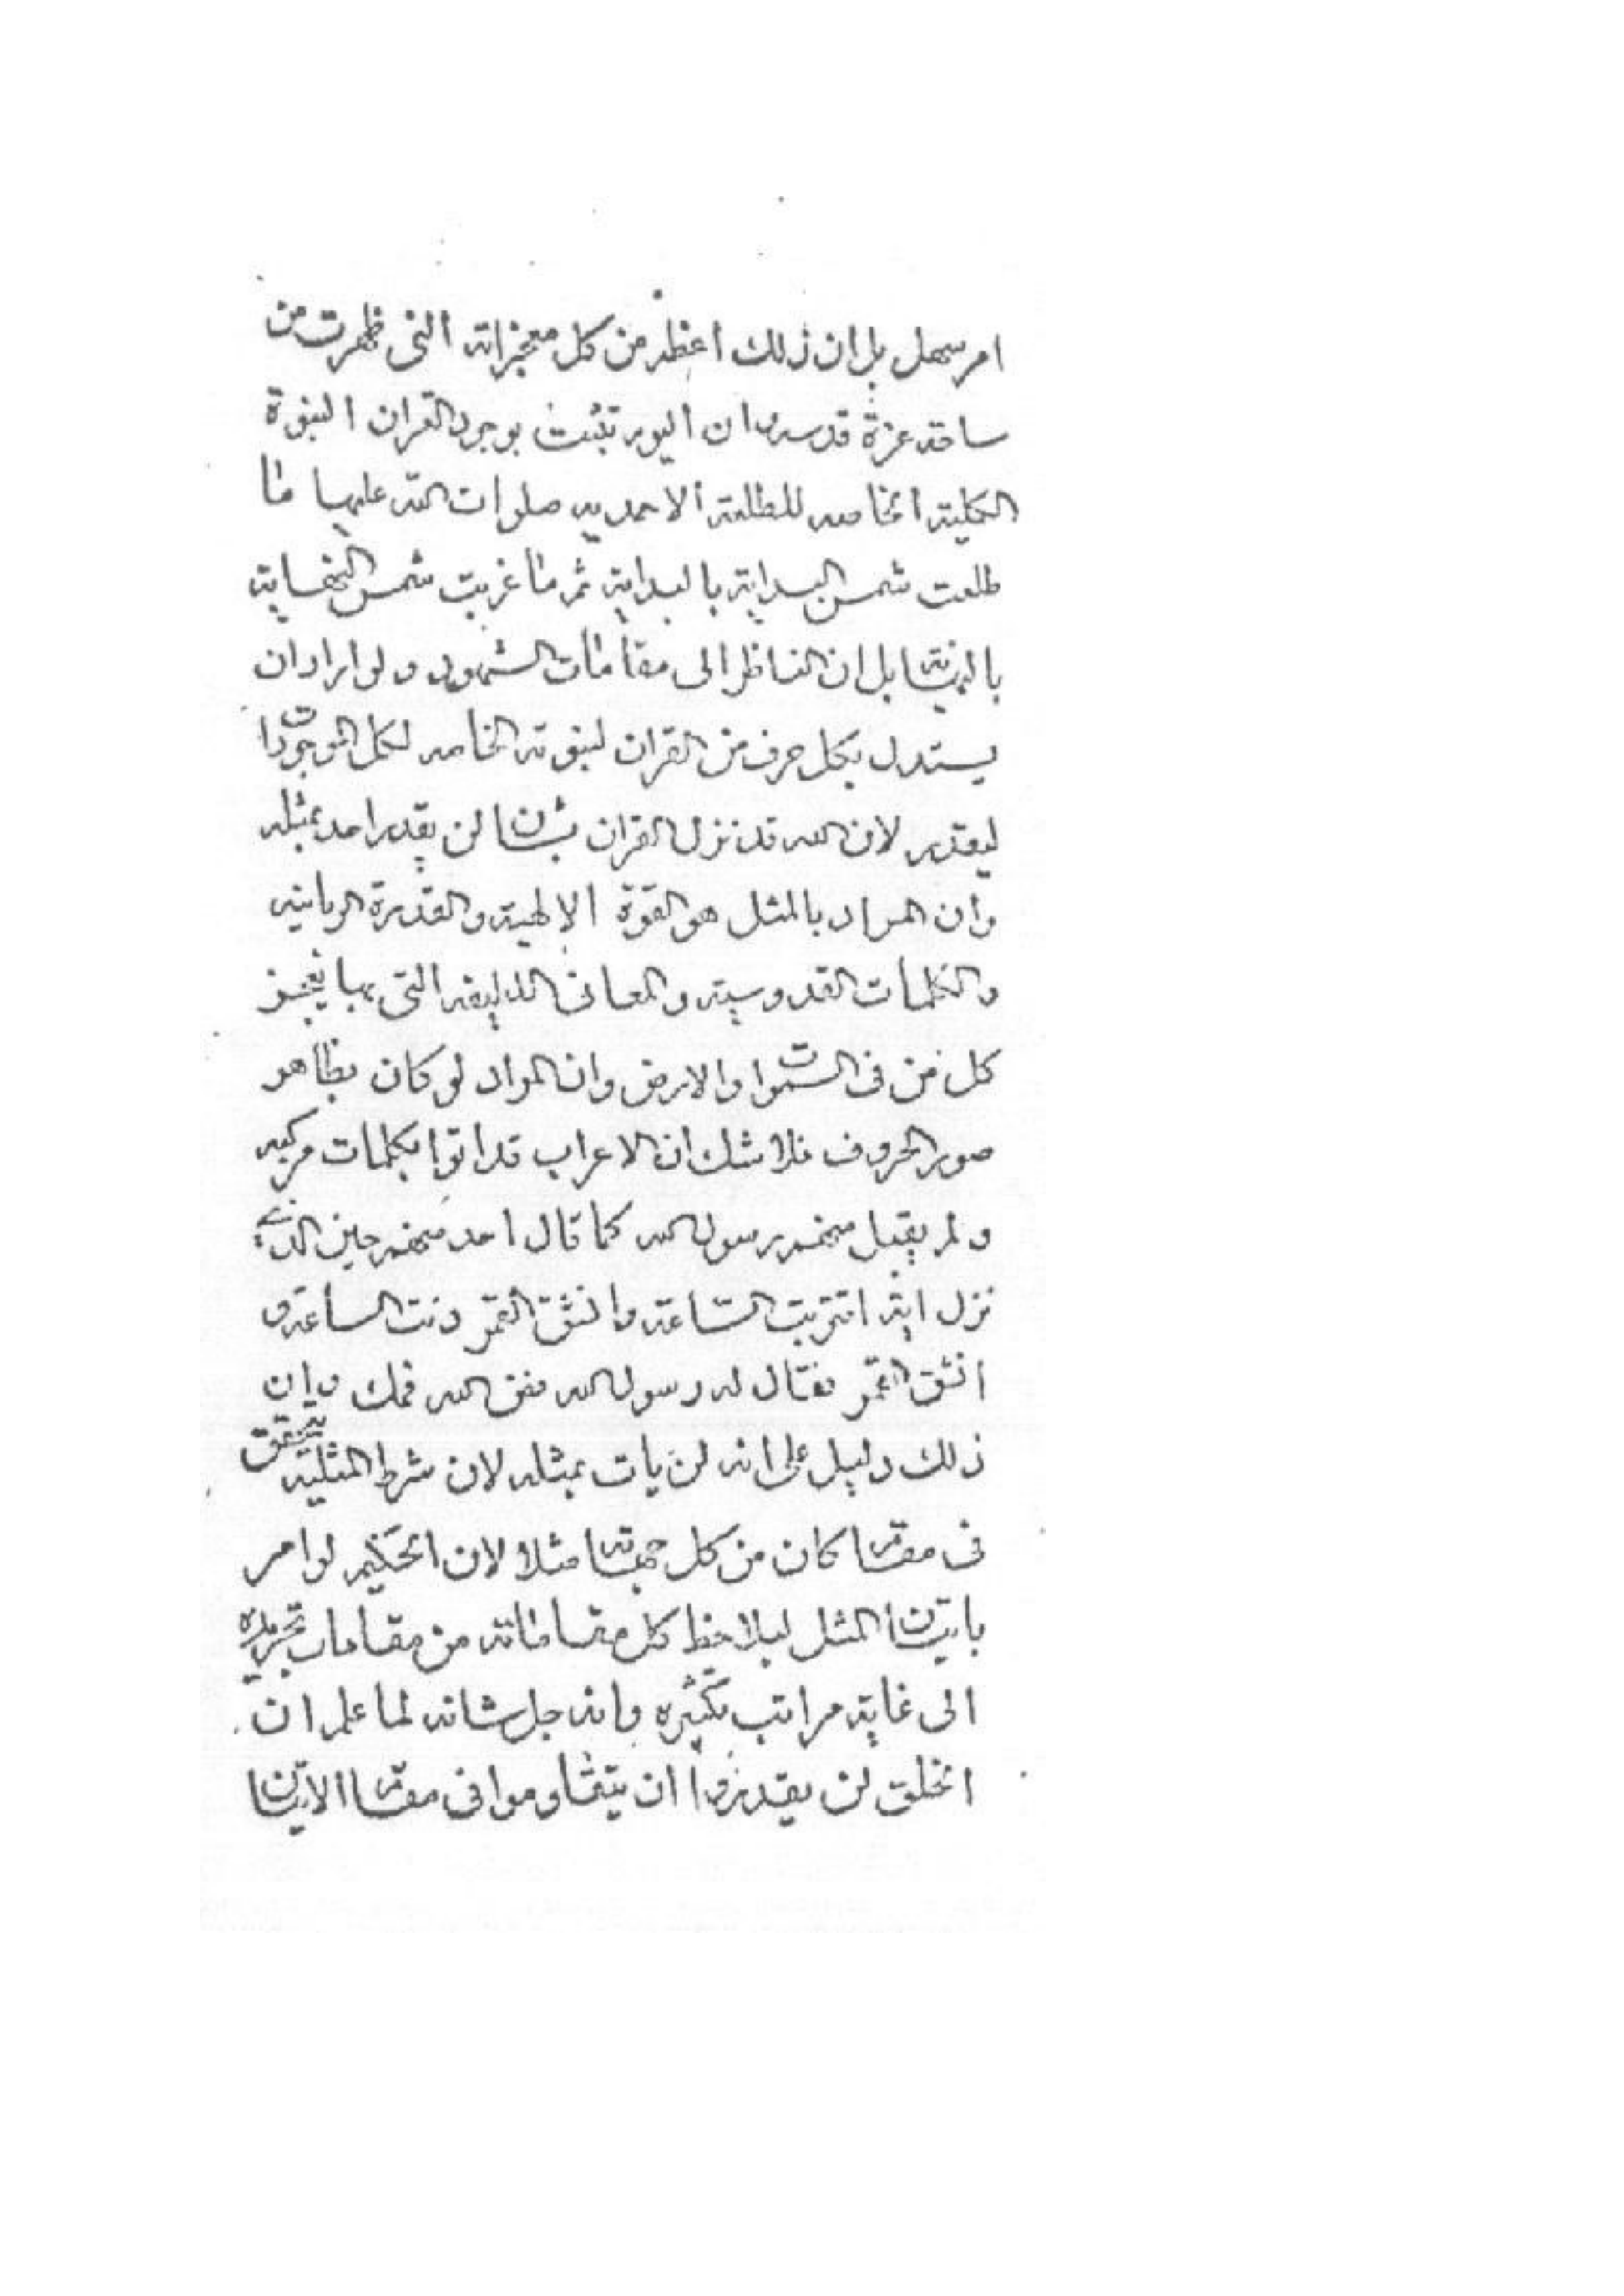 امر سهل بل ان ذلك اعظم من كل معجزاته التى ظهرت من
ساحة عزة قدسه وان اليوم تثبت بوجود القران النبوة
الكلية الخاصه للطلعة الاحمديه صلوات الله عليها ما
طلعت شمس البداية بالبداية ثم ما غربت شمس النهاية
بالنهاية بل ان الناظر الى مقامات الشهود ولو اراد ان
يستدل بكل حرف من القران لنبوته الخاصه لكل الموجودات
ليقدر لان الله قد نزل القران بشان لن يقدر احد بمثله
وان المراد بالمثل هو القوة الالهية والقدرة الربانيه
والكلمات القدوسية والمعانى التى بها يعجز
كل من فى السموات والارض وان المراد لو كان بظاهر
صور الحروف فلا شك ان الاعراب قد اتوا بكلمات مركبه
ولم يقبل منهم رسول الله كما قال احد منهم حين الذى
نزل اية اقتربت الساعة وانشق القمر دنت الساعة و
انشق القمر فقال له رسول الله فض الله فمك وان
ذلك دليل على انه لن يات بمثله لان شرط المثلية يتحقق
فى مقام كان من كل جهاته مثلا لان الحكيم لو امر
باتيان المثل ليلاحظ كل مقاماته من مقامات تجريده
الى غاية مراتب تكثره وانه جل شانه لما علم ان
الخلق لن يقدروا ان يتقاوموا فى مقام الاتيان